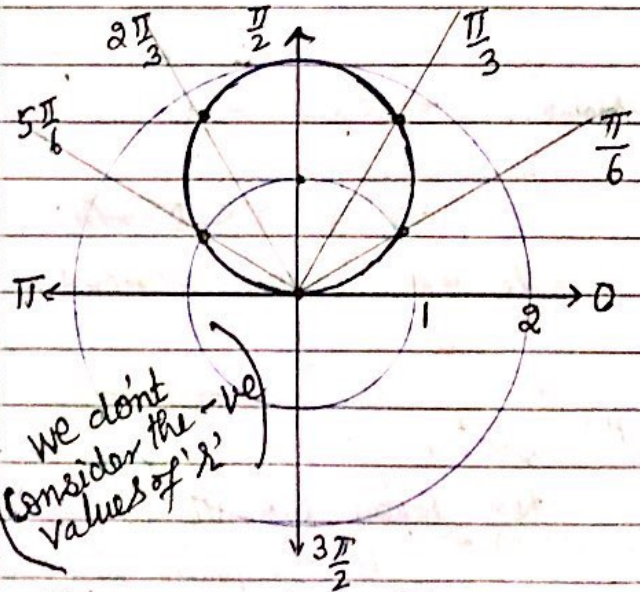 2π/3 π/2 π/3
5π/6 π/6
π 0
1 2
we don't
Consider the -ve
values of 'r'
3π/2